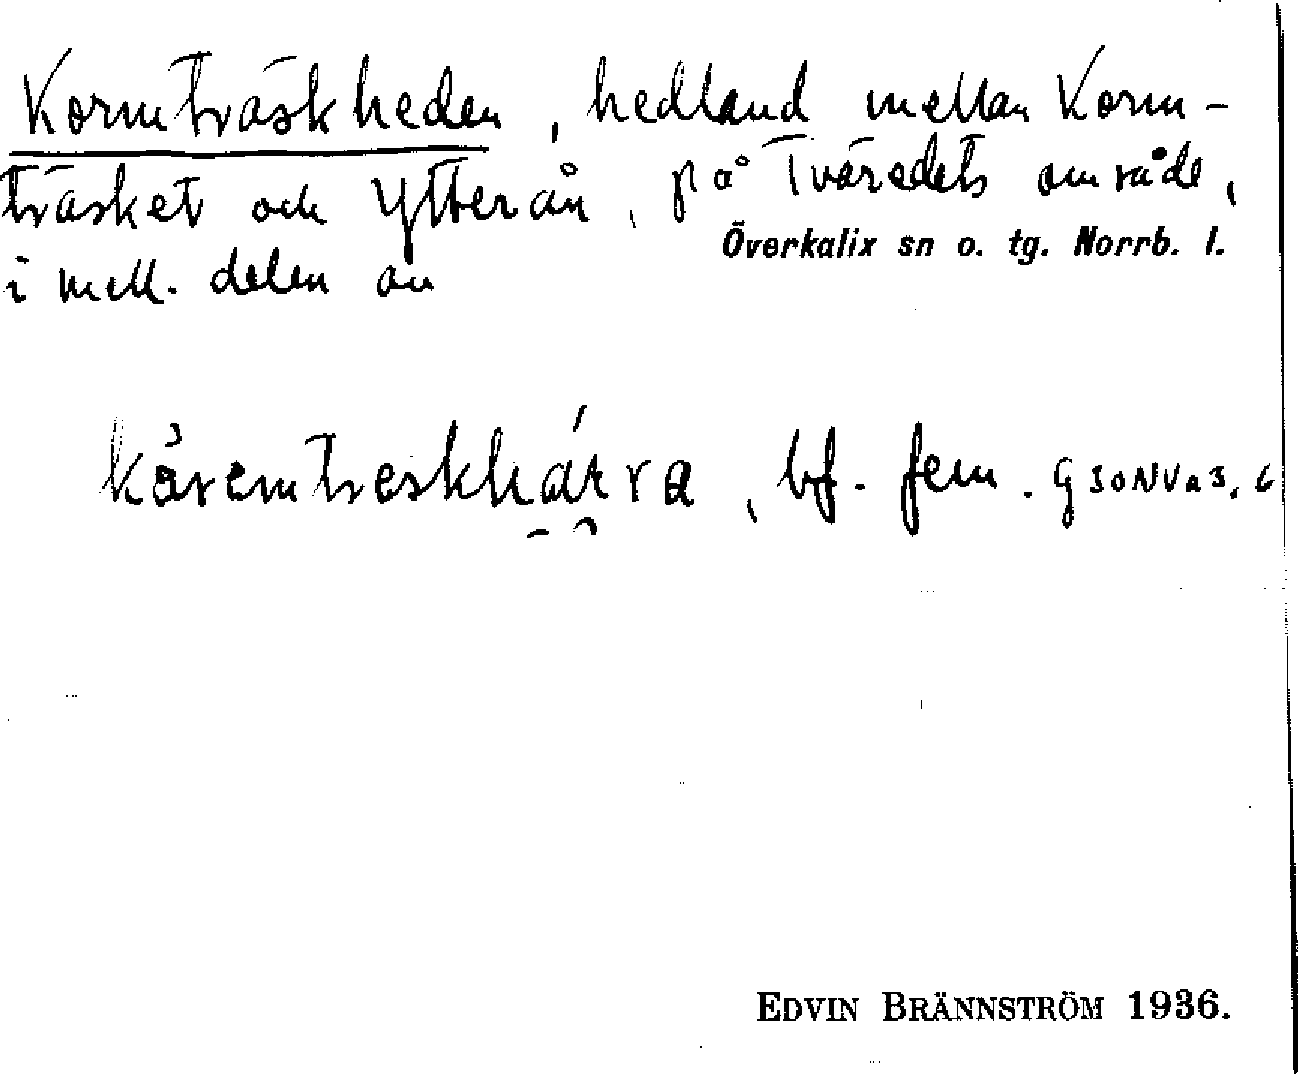 Kormträskheden, hedland mellan Korm-
träsket och Ytterån, på Tväredets område,
i mell. delen av Överkalix sn o. tg. Norrb. l.
bf. fem.
EDVIN BRÄNNSTRÖM 1936.